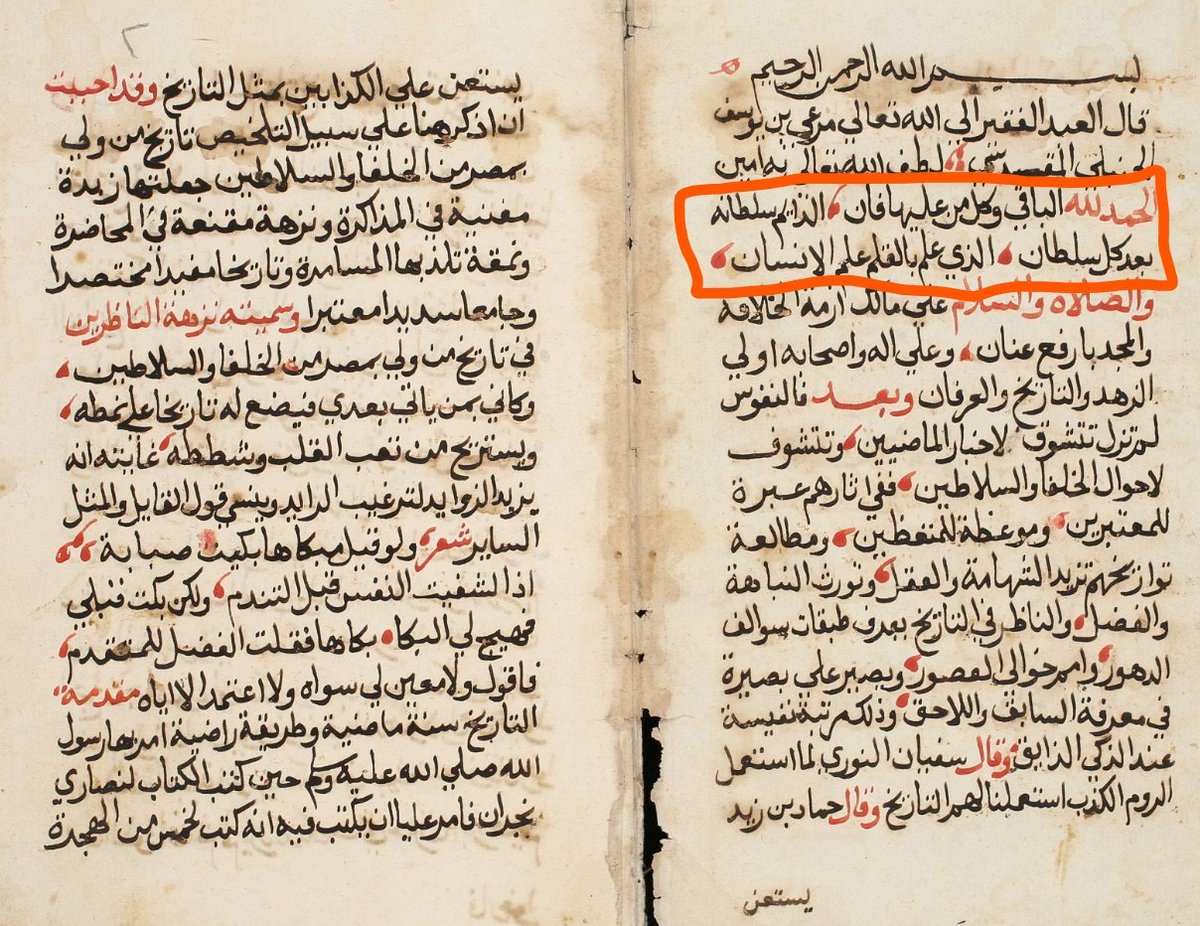 بسم الله الرحمن الرحيم
قال العبد الفقير الي الله تعالي مرعي بن يوسف
الحنبلي المقدسي لطف الله تعالي به امين
الحمد لله الباقي وكل من عليها فان الدايم سلطانه
بعد كل سلطان الذي علم بالقلم علم الانسان
والصلاة والسلام علي مالك ازمة الخلافة
والمجد بارفع عنان وعلي اله واصحابه اولي
الزهد والتاريخ والعرفان وبعد فالنفوس
لم تزل تتشوق لاخبار الماضيين وتتشوف
لاحوال الخلفا والسلاطين ففي اثارهم عبرة
للمعتبرين وموعظة للمتعظين ومطالعة
تواريخهم تزيد الشهامة والعقل وتورث النباهة
والفضل والناظر في التاريخ يعرف طبقات سوالف
الدهور وامم خوالي العصور ويصير علي بصيرة
في معرفة السابق واللاحق وذلك مرتبة نفيسة
عند الذكي الذايق وقال سفيان الثوري لما استعمل
الروم الكذب استعملنا لهم التاريخ وقال حماد بن زيد
يستعن
٢
يستعن علي الكذابين بمثل التاريخ وقد احببت
ان اذكر هنا علي سبيل التلخيص تاريخ من ولي
بمصر من الخلفا والسلاطين جعلتها زبدة
مغنية في المذاكرة ونزهة مقنعة في المحاضرة
ونمقة تلذ بها المسامرة وتاريخا مفيدا مختصرا
وجامعا سديدا معتبرا وسميته نزهة الناظرين
في تاريخ من ولي بمصر من الخلفا والسلاطين
وكاني بمن ياتي بعدي فيضع له تاريخا علي نمطه
ويستريح من تعب القلب وشططه غايته انه
يزيد الزوايد لترغيب الرايد وينسي قول القايل والمثل
الساير شعر ولو قبل مبكاها بكيت صبابة
اذا لشفيت النفس قبل التندم ولكن بكت قبلي
فهيج لي البكا بكاها فقلت الفضل للمتقدم
فاقول ولا معين لي سواه ولا اعتمد الا اياه مقدمة
التاريخ سنة ماضية وطريقة راضية امر بها رسول
الله صلي الله عليه وسلم حين كتب الكتاب لنصاري
نجران فامر عليا ان يكتب فيه انه كتب لخمس من الهجرة